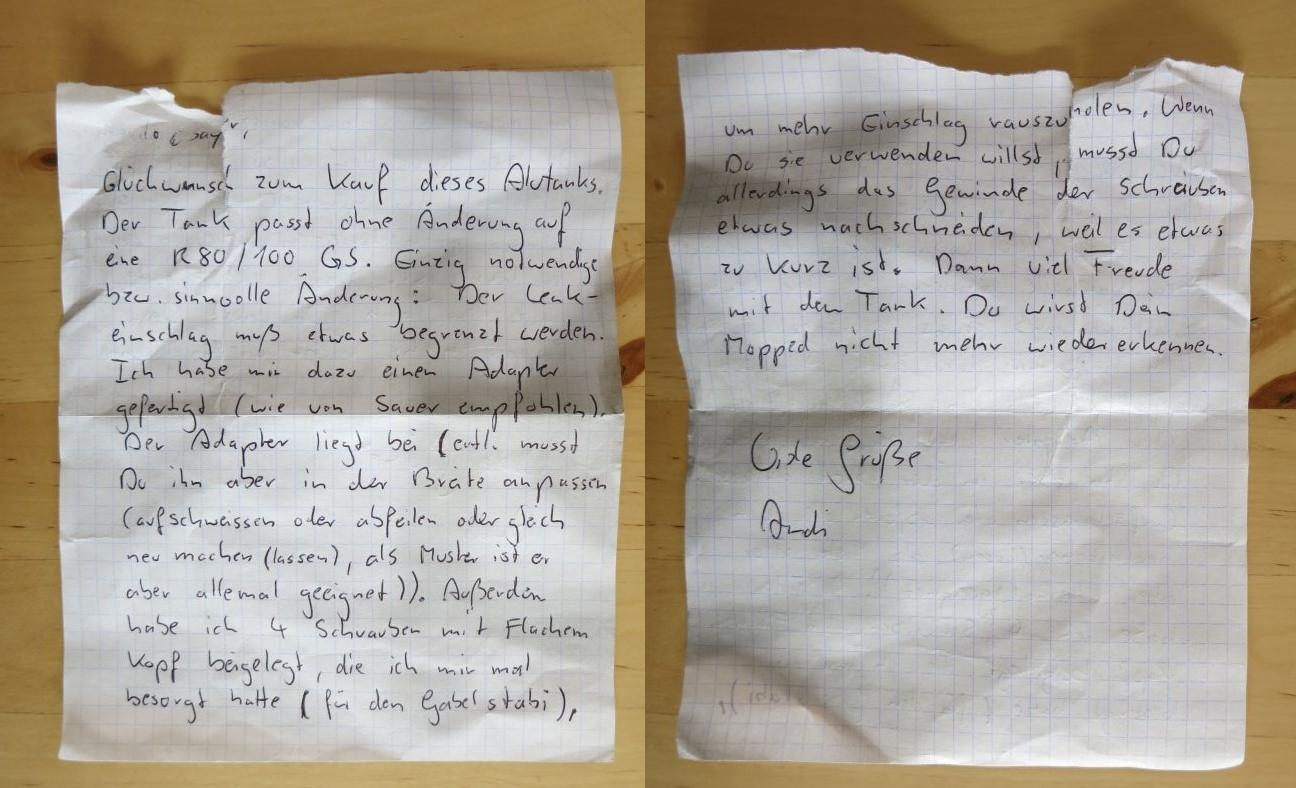 Glückwunsch zum Kauf dieses Alutanks.
Der Tank passt ohne Änderung auf
eine R80/100 GS. Einzig notwendige
bzw. sinnvolle Änderung: Der Lenk-
einschlag muß etwas begrenzt werden.
Ich habe mir dazu einen Adapter
gefertigt (wie von Sauer empfohlen).
Der Adapter liegt bei (evtl. musst
Du ihn aber in der Breite anpassen
(aufschweissen oder abfeilen oder gleich
neu machen (lassen), als Muster ist er
aber allemal geeignet)). Außerdem
habe ich 4 Schrauben mit Flachem
Kopf beigelegt, die ich mir mal
besorgt hatte (für den Gabelstabi),
um mehr Einschlag rauszuholen. Wenn
Du sie verwenden willst, musst Du
allerdings das Gewinde der Schrauben
etwas nachschneiden, weil es etwas
zu kurz ist. Dann viel Freude
mit dem Tank. Du wirst Dein
Mopped nicht mehr wiedererkennen.
Gute Grüße
Andi